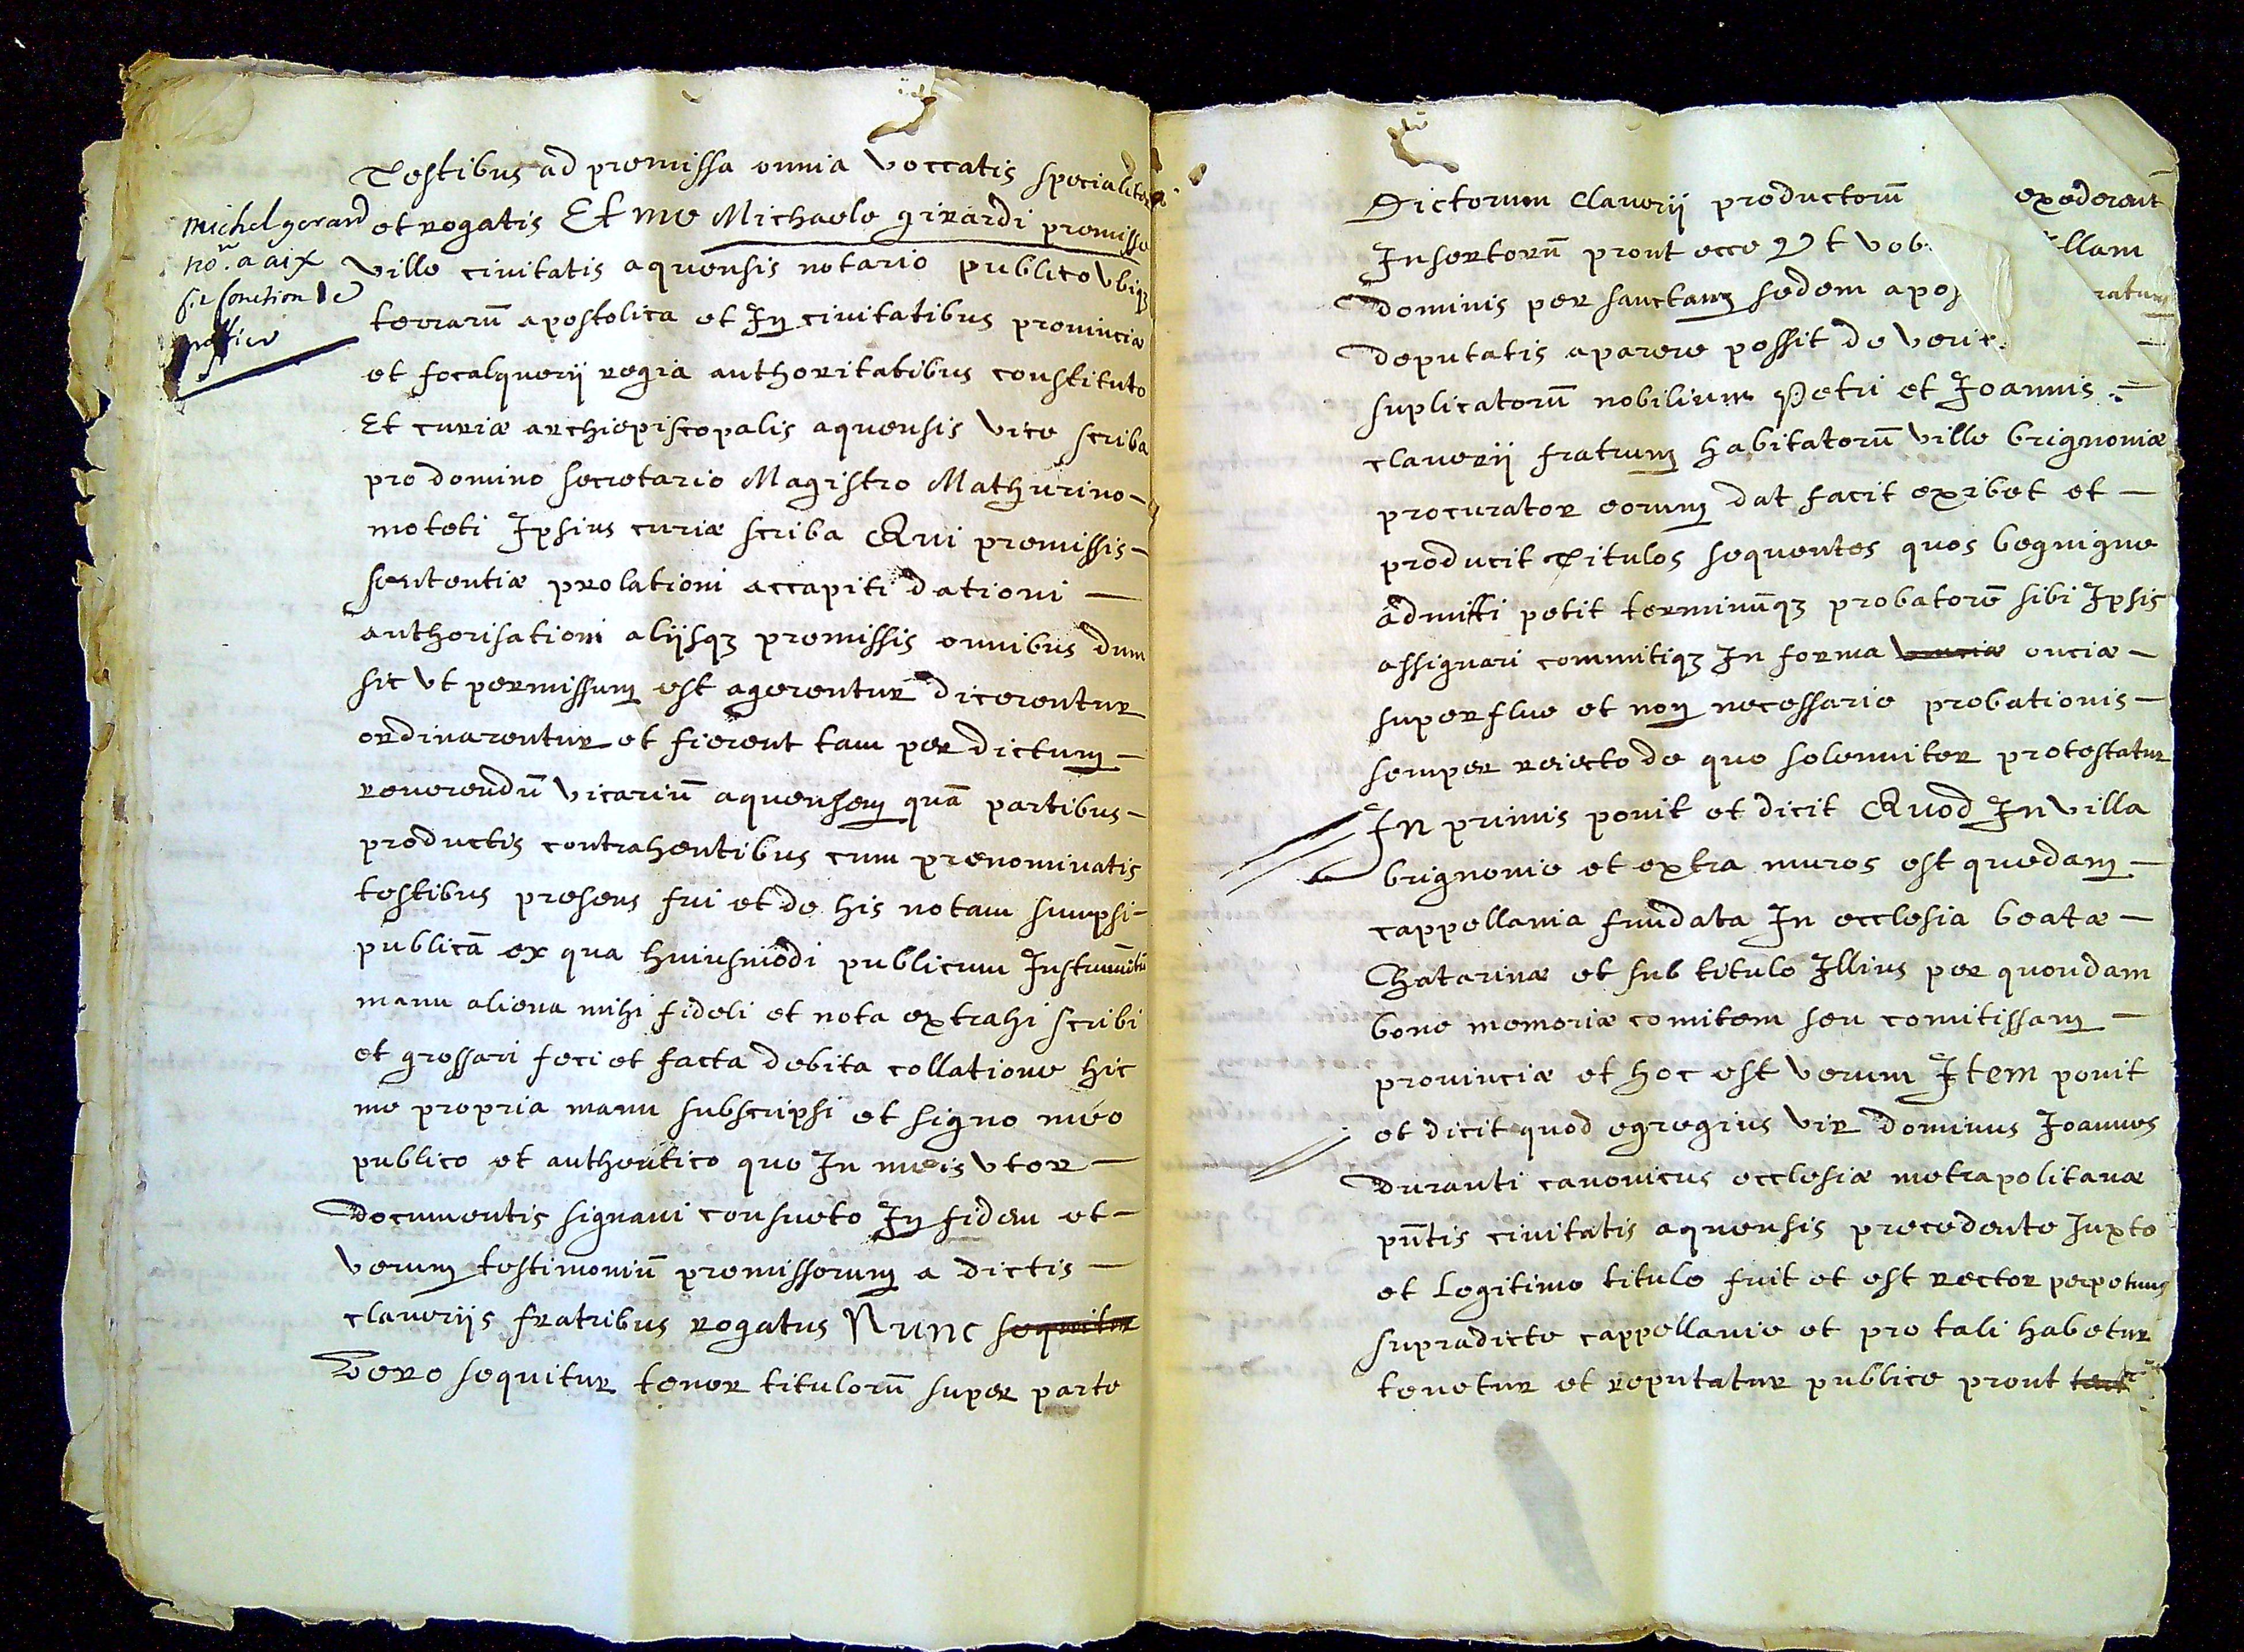 Testibus ad premissa omnia voccatis specialiter
et rogatis Et me Michaele girardi premisse
ville civitatis aquensis notario publico vbiqz
terrarū apostolica et In civitatibus provinciæ
et focalquerij regia authoritatibus constituto
Et curiæ archiepiscopalis aquensis vice scriba
pro domino secretario Magistro Mathurino -
moteti Ipsius curiæ scriba Qui premissis -
sententiæ prolationi accapiti dationi -
authorisationi alijsqz premissis omnibus dum
sic vt permissum est agerentur dicerentur
ordinarentur et fierent tam per dictum -
reverendū vicariū aquensem quā partibus -
productis contrahentibus cum prenominatis
testibus presens fui et de his notam sumpsi -
publicā ex qua huiusmodi publicum Instrumētū
manu aliena mihi fideli et nota extrahi scribi
et grossari feci et facta debita collatione hic
me propria manu subscripsi et signo meo
publico et authentico quo In meis vtor -
documentis signaui consueto In fidem et -
verum testimoniū premissorum a dictis -
clauerijs fratribus rogatus Nunc sequitur
Vero sequitur tenor titulorū super parte
michel gerard
no.re a aix
Dictorum clauerij productorū exederent
Insertorū prout ecce Vt vob llam
dominis per sanctam sedem apos ratum
deputatis aparere possit de veri -
suplicatorū nobilium Petri et Joannis -
clauerij fratrum habitatorū ville brignoniæ
procurator eorum dat facit exibet et -
producit Titulos sequentes quos begnigne
admitti petit terminūqz probatorē sibi Ipsis
assignari commitiqz In forma onciæ -
superflue et non necessarie probationis -
semper reiecto de quo solemniter protestatur
In primis ponit et dicit Quod In villa
brignonie et extra muros est quedam -
cappellania fundata In ecclesia beatæ -
Chatarinæ et sub titulo Illius per quondam
bone memoriæ comitem seu comitissam -
provinciæ et hoc est verum Item ponit
et dicit quod egregius vir dominus Joannes
duranti canonicus ecclesiæ metrapolitanæ
pn̄tis civitatis aquensis precedente Iuxto
et Legitimo titulo fuit et est rector perpetuus
supradicte cappellanie et pro tali habetur
tenetur et reputatur publice prout